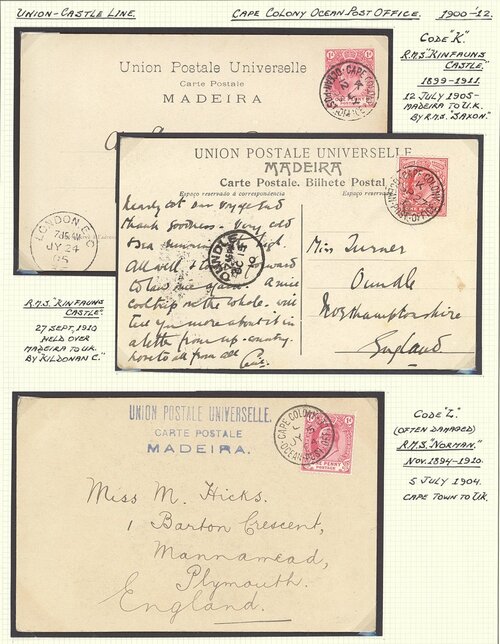 UNION-CASTLE LINE.
CAPE COLONY OCEAN POST OFFICE.
1900-'12.
CODE "K"
R.M.S. "KINFAUNS
CASTLE,"
1899-1911.
12 JULY 1905-
MADEIRA TO U.K.
BY R.M.S. "SAXON."
Union Postale Universelle
Carte Postale
MADEIRA
LONDON E.C
7.15 AM
JY 24
05
UNION POSTALE UNIVERSELLE
MADEIRA
Carte Postale. Bilhete Postal
Espaço reservado à correspondencia
Nearly at our voyage end
thank goodness - Very cold
All well
forward
to
A nice
cool trip on the whole. will
tell you more about it in
a letter from up-country.
love to all from all
Miss Turner
Oundle
Northamptonshire
England
OUNDLE
R.M.S. "KINFAUNS
CASTLE".
27 SEPT, 1910
HELD OVER
MADEIRA TO U.K.
BY "KILDONAN C."
UNION POSTALE UNIVERSELLE.
CARTE POSTALE
MADEIRA.
CAPE COLONY
OCEAN-POST-OFFICE
ONE PENNY
Miss M. Hicks.
1 Barton Crescent,
Mannamead,
Plymouth.
England.
CODE "L"
(OFTEN DAMAGED)
R.M.S. "NORMAN."
NOV. 1894-1910.
5 JULY 1904.
CAPE TOWN TO U.K.